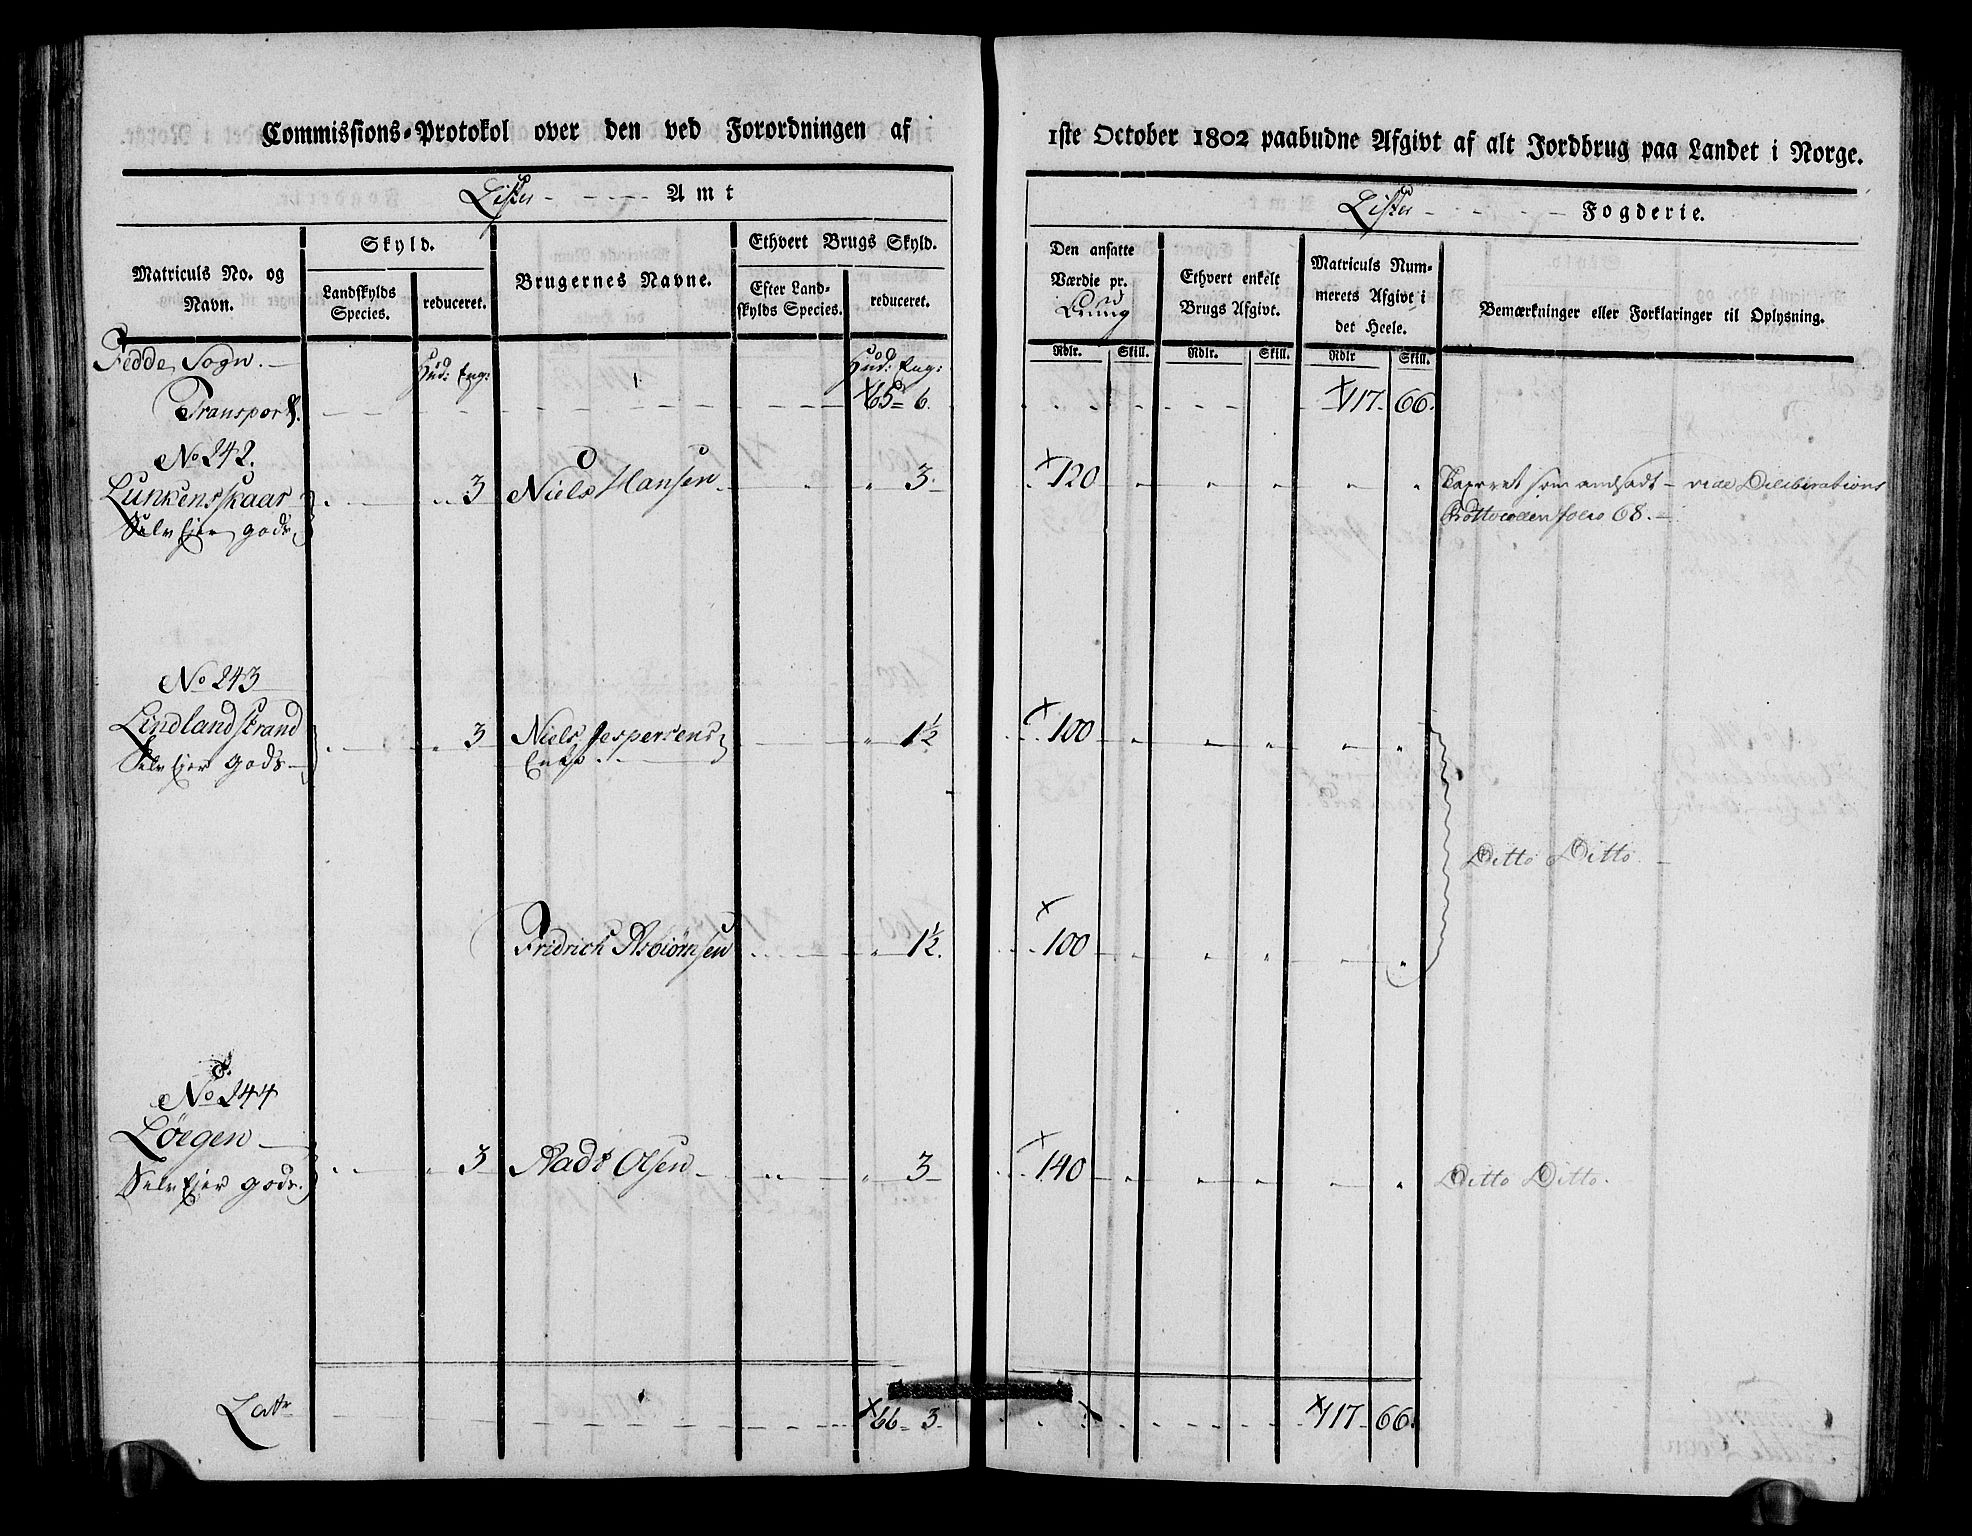 Commissions-Protokol over den ved Forordningen af 1ste October 1802 paabudne Afgivt af alt Jordbrug paa Landet i Norge.
Lister Amt
Lister Fogderie.
Matriculs No. og Navn.
Skyld.
Landskylds Species.
reduceret.
Brugernes Navne.
Ethvert Brugs Skyld.
Efter Landskylds Species.
reduceret.
Den ansatte Værdie pr.
Ethvert enkelt Brugs Afgivt.
Matriculs Nummerets Afgivt i det Heele.
Bemærkninger eller Forklaringer til Oplysning.
Rdlr. Skill. Rdlr. Skill. Rdlr Skill.
Fedde Sogn.
Hud: Eng: Hud: Eng:
Transport. 65 6. 117. 66.
No 242.
Lunkensskaar 3 Niels Hansen 3. 120 " " " " " Taxeret som andsadt vide Deliberations
Selv Ejer gods. Prottocollen folio 68.
No 243
Lindland strand 3 Niels Jespersens 1½ 100 " " " " "
Selv Ejer gods Enke
Ditto Ditto
Fridrich Asbiørnsen 1½. 100 " " " " "
No 244
Løegen 3 Aads Olsen 3 140 " " " " " Ditto Ditto.
Selv Ejer gods.
Latr 66 3. 117 66.